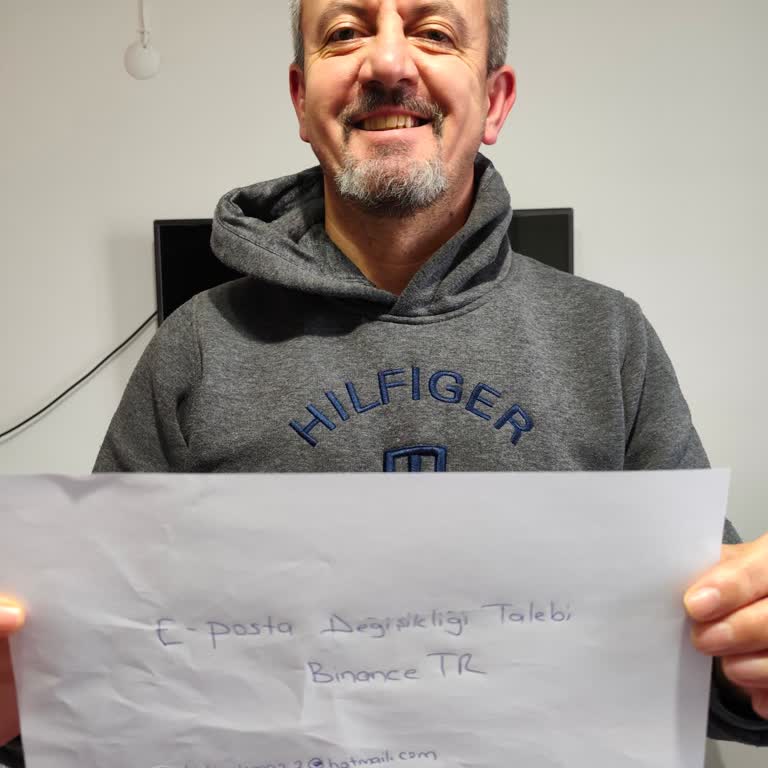 HILFIGER
E-posta Değişikliği Talebi
Binance TR